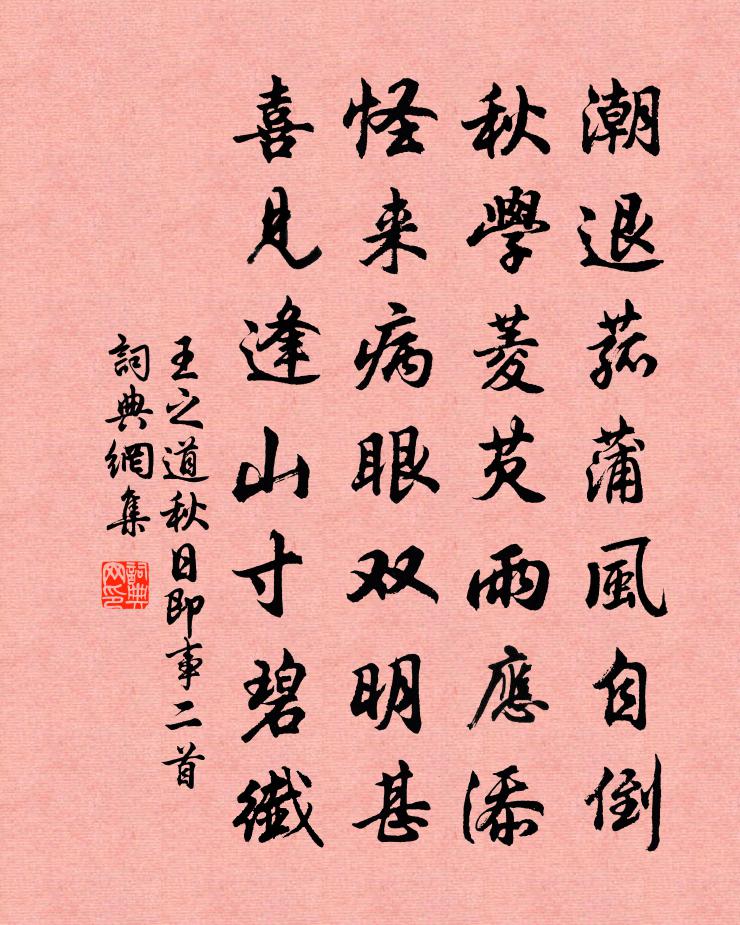 潮退菰蒲風自倒
秋學菱芡雨應添
怪来病眼双明甚
喜見逢山寸碧纖
王之道秋日即事二首
詞典網集
詞典網印